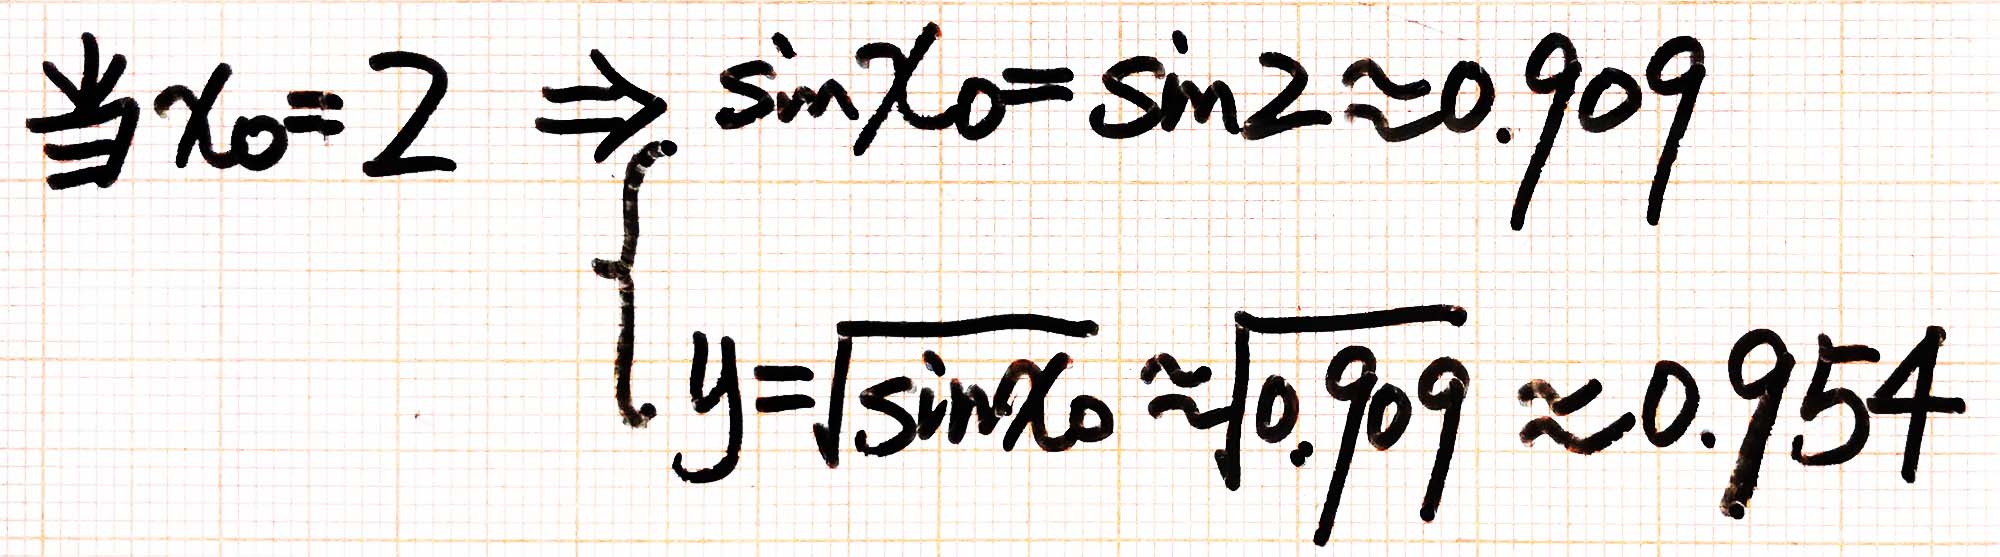 当x₀=2 ⇒ sinx₀=sin2≈0.909
{ y=√sinx₀ ≈√0.909 ≈0.954